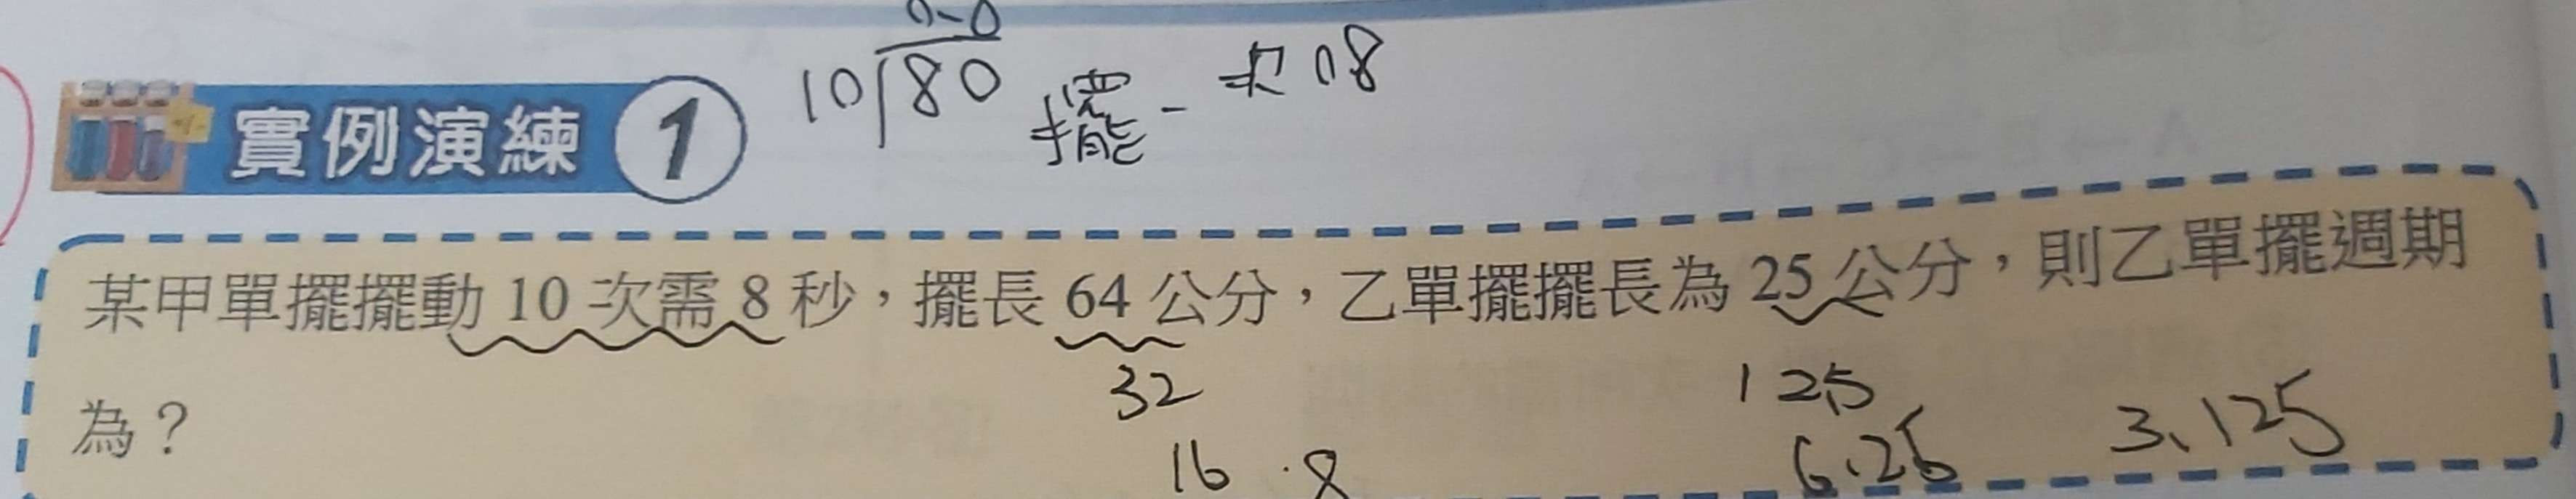 10 80
擺一次 0.8
實例演練 1
某甲單擺擺動 10 次需 8 秒，擺長 64 公分，乙單擺擺長為 25 公分，則乙單擺週期
為？
32 12.5
16 .8 6.25 3.125